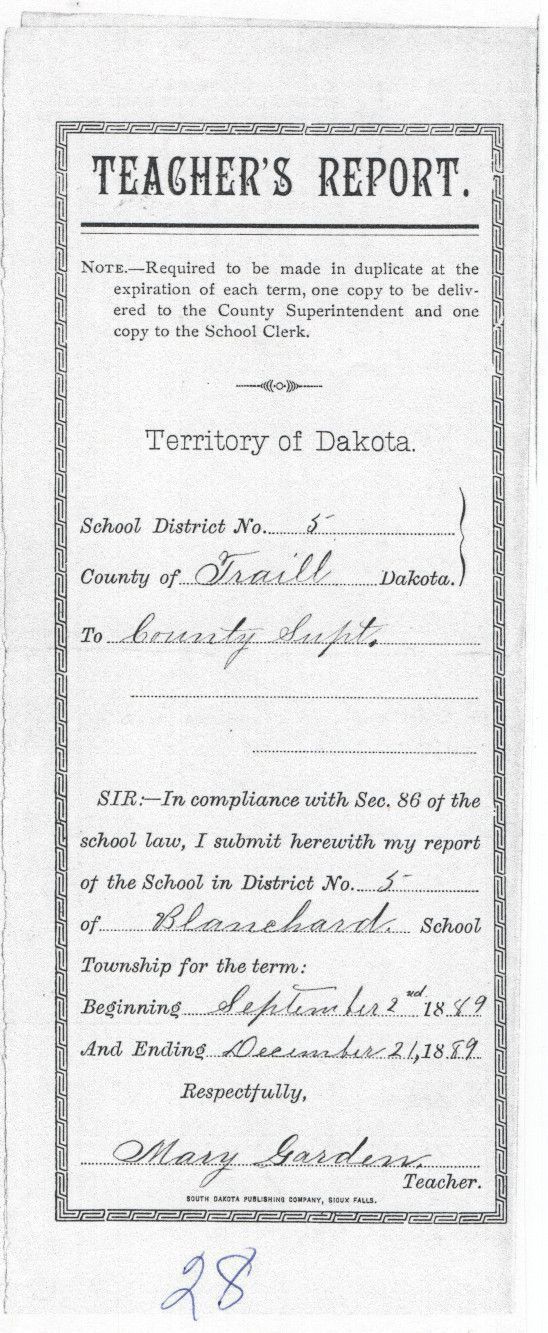 TEACHER'S REPORT.
NOTE.—Required to be made in duplicate at the
expiration of each term, one copy to be deliv-
ered to the County Superintendent and one
copy to the School Clerk.
Territory of Dakota.
School District No. 5
County of Traill Dakota.
To County Supt.
SIR:—In compliance with Sec. 86 of the
school law, I submit herewith my report
of the School in District No. 5
of Blanchard. School
Township for the term:
Beginning September 2nd 1889
And Ending December 21, 1889.
Respectfully,
Mary Garden.
Teacher.
SOUTH DAKOTA PUBLISHING COMPANY, SIOUX FALLS.
28